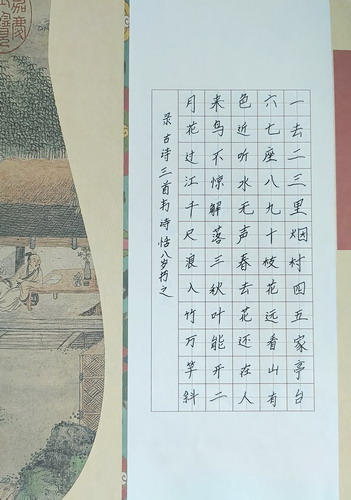 一去二三里烟村四五家亭台
六七座八九十枝花远看山有
色近听水无声春去花还在人
来鸟不惊解落三秋叶能开二
月花过江千尺浪入竹万竿斜
录古诗三首诗恬八岁书之
嘉慶